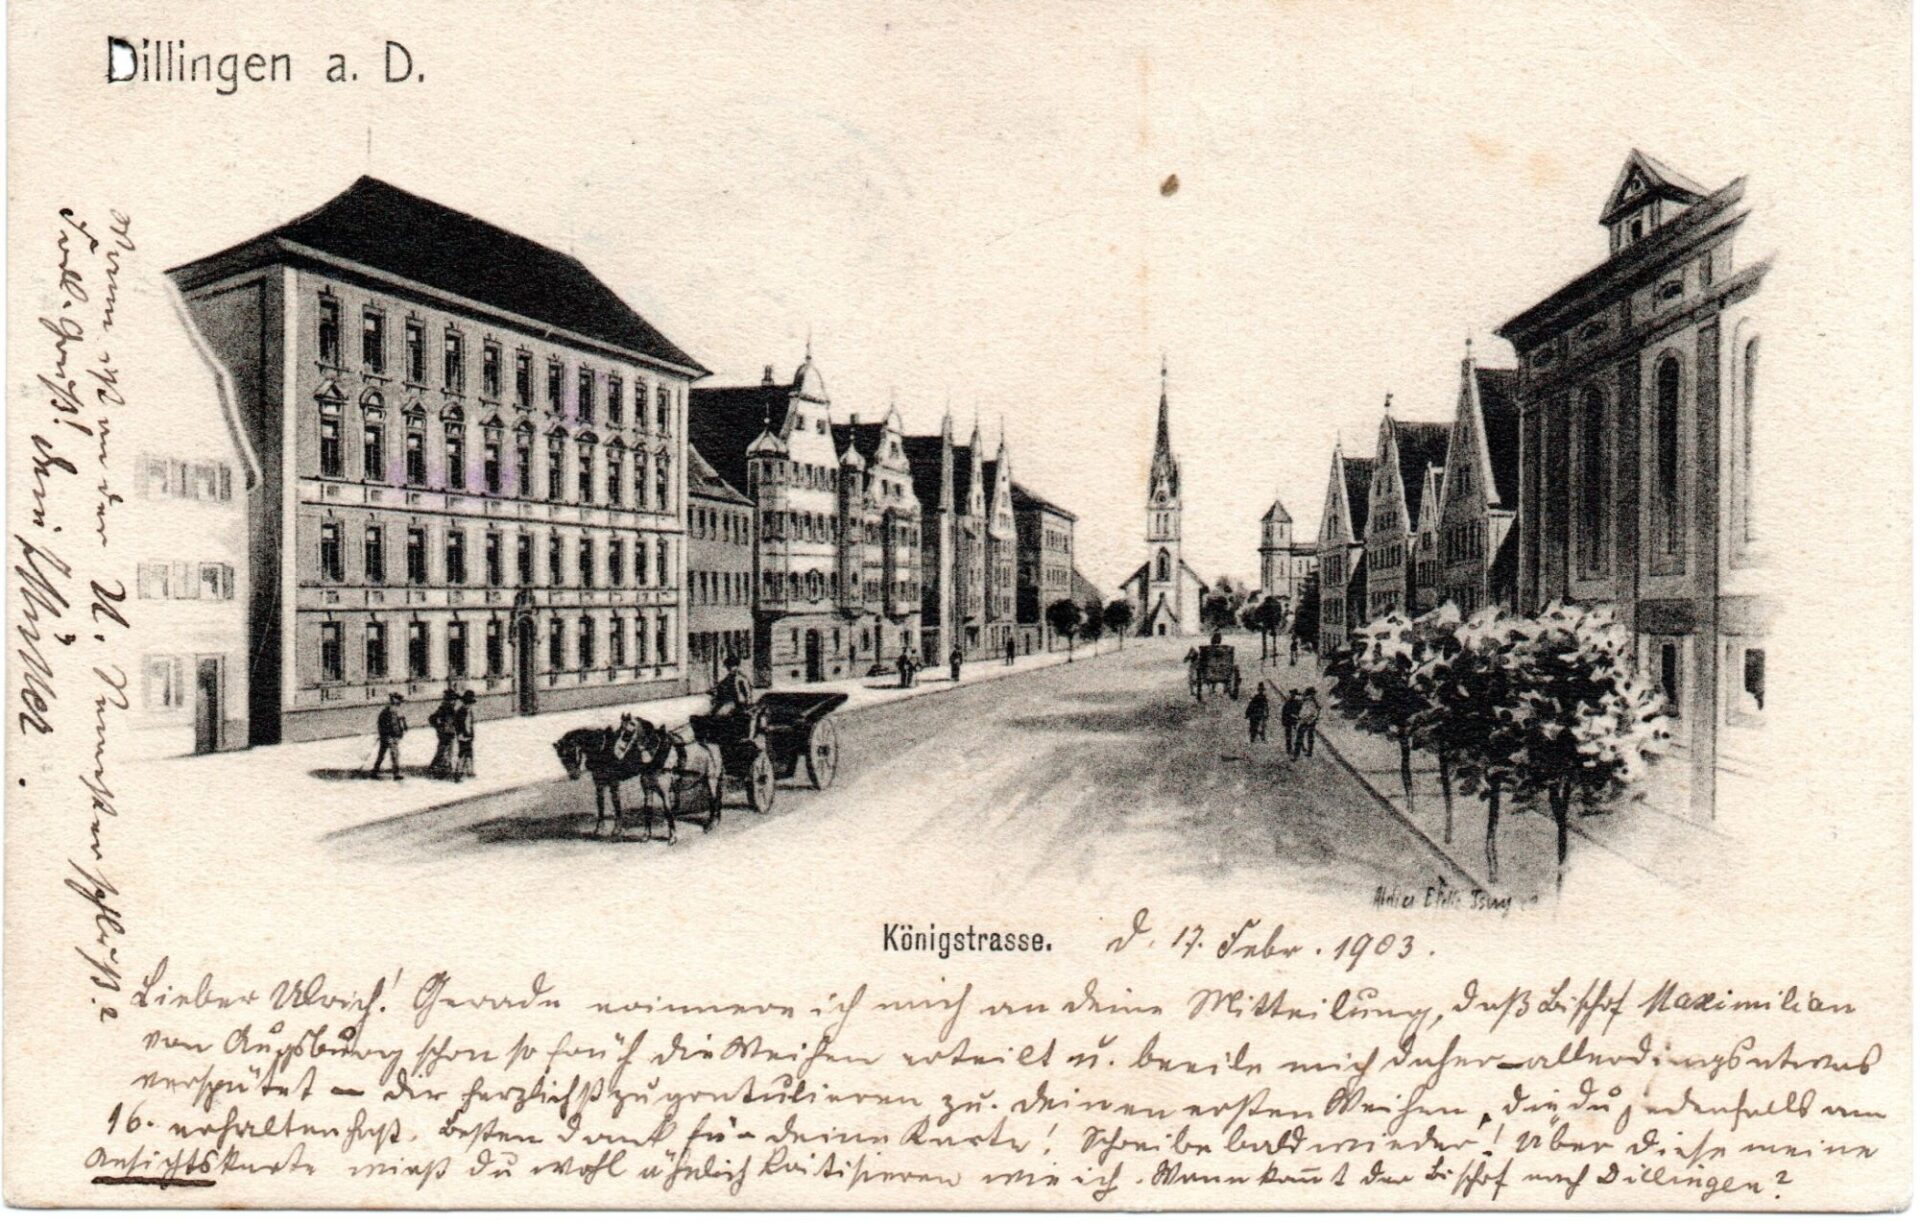 Dillingen a. D.
Königstrasse.
d. 17. Febr. 1903.
Lieber Ulrich! Gerade erinnere ich mich an deine Mitteilung, daß Bischof Maximilian
von Augsburg schon so früh die Weihen erteilt u. beeile mich daher – allerdings etwas
verspätet – dir herzlichst zu gratulieren zu deinen ersten Weihen, die du jedenfalls am
16. erhalten hast. Besten Dank für deine Karte! Schreibe bald wieder! Über diese meine
Ansichtskarte wirst du wohl ähnlich kritisieren wie ich. Wann kom̄t der Bischof nach Dillingen?
Wann ist an der U. Semesterschluß?
Frdl. Gruß! dein